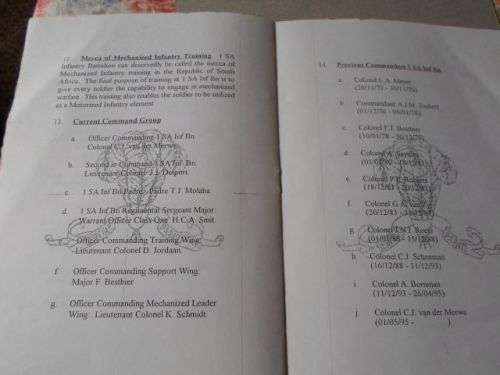 12. Mecca of Mechanized Infantry Training 1 SA
Infantry Battalion can deservedly be called the mecca of
Mechanized Infantry training in the Republic of South
Africa. The final purpose of training at 1 SA Inf Bn is to
give every soldier the capability to engage in mechanized
warfare. This training also enables the soldier to be utilized
as a Motorized Infantry element
13. Current Command Group
a. Officer Commanding 1 SA Inf Bn
Colonel C.J. van der Merwe
b. Second in Command 1 SA Inf Bn
Lieutenant Colonel J.J.
c. 1 SA Inf Bn Padre: Padre T.J. Molaba
d. 1 SA Inf Bn Regimental Sergeant Major
Warrant Officer Class One H.C.A. Smit
Officer Commanding Training Wing:
Lieutenant Colonel D. Jordaan
f. Officer Commanding Support Wing:
Major F. Besthier
g. Officer Commanding Mechanized Leader
Wing: Lieutenant Colonel K. Schmidt
14. Previous Commanders 1 SA Inf Bn
a. Colonel L.A. Meyer
b. Commandant A.J.M. Joubert
c. Colonel F.J.
d. Colonel A.
e. Colonel
f. Colonel G.
g. Colonel
h. Colonel C.J. Schoeman
(16/12/88 - 11/12/93)
i. Colonel A. Bornman
(11/12/93 - 26/04/95)
j. Colonel C.J. van der Merwe
(01/05/95 - )